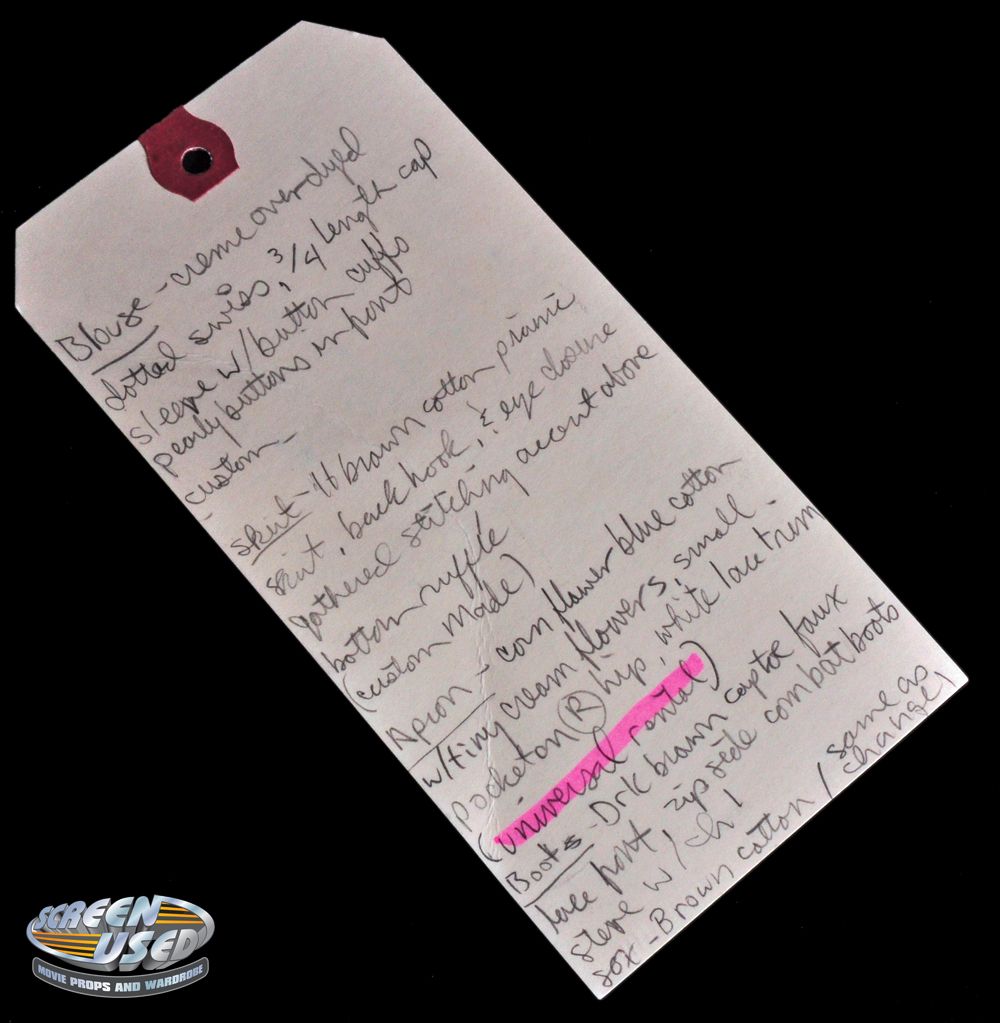 Blouse - creme over dyed
dotted swiss, 3/4 length cap
sleeve w/button cuffs
pearly buttons in front
custom -
skirt - brown cotton prairie
skirt, back hook & eye closure
gathered stitching accent above
bottom ruffle
(custom made)
Apron - corn flower blue cotton
w/tiny cream flowers, small
pocket on (R) hip, white lace trim
(universal rental)
Boots - Drk brown captoe faux
lace front, zip side combat boots
steve w/ ch 1
sox - Brown cotton / same as
change 1
SCREEN
USED
MOVIE PROPS AND WARDROBE